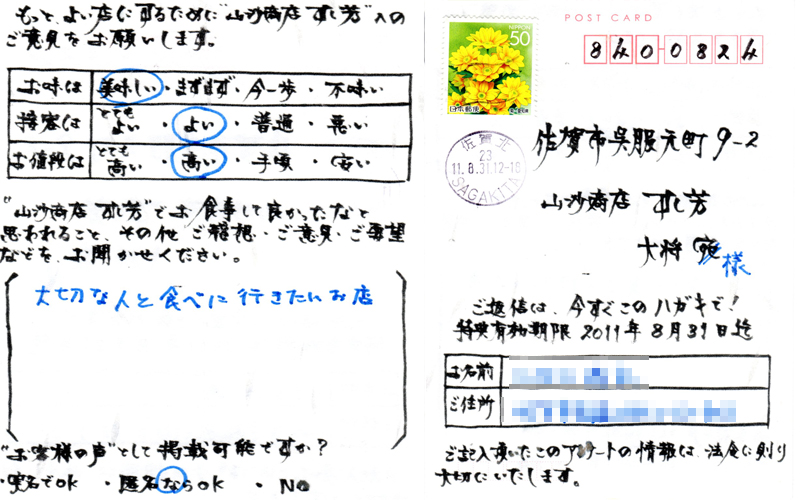 もっと、よい店にするために"山沙商店 すし芳"への
ご意見をお願いします。
お味は 美味しい・まずまず・今一歩・不味い
接客は とてもよい・よい・普通・悪い
お値段は とても高い・高い・手頃・安い
"山沙商店 すし芳"でお食事して良かったなと
思われること、その他ご感想・ご意見・ご要望
などを、お聞かせください。
大切な人と食べに行きたいお店
"お客様の声"として掲載可能ですか?
・実名でOK ・匿名ならOK ・NO
POST CARD
NIPPON
50
日本郵便
840-0824
佐賀北
23
11.8.31.12-18
SAGAKITA
佐賀市呉服元町9-2
山沙商店 すし芳
大将 宛 様
ご返信は、今すぐこのハガキで!
特典有効期限 2011年8月31日迄
お名前
ご住所
ご記入頂いたこのアンケートの情報は、法令に則り
大切にいたします。